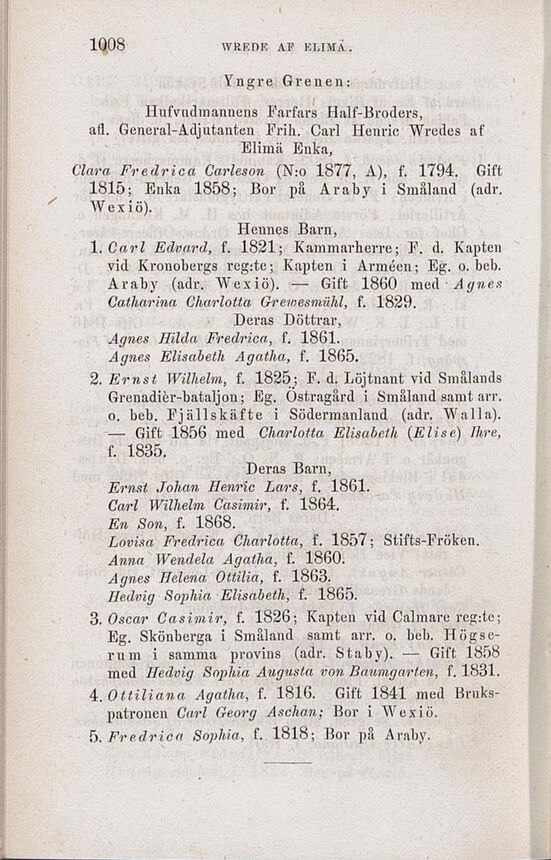 1008
WREDE AF ELIMÄ.
Yngre Grenen:
Hufvudmannens Farfars Half-Broders,
afl. General-Adjutanten Frih. Carl Henric Wredes af
Elimä Enka,
Clara Fredrica Carleson (N:o 1877, A), f. 1794. Gift
1815; Enka 1858; Bor på Araby i Småland (adr.
Wexiö).
Hennes Barn,
1. Carl Edvard, f. 1821; Kammarherre; F. d. Kapten
vid Kronobergs reg:te; Kapten i Arméen; Eg. o. beb.
Araby (adr. Wexiö). — Gift 1860 med Agnes
Catharina Charlotta Grewesmühl, f. 1829.
Deras Döttrar,
Agnes Hilda Fredrica, f. 1861.
Agnes Elisabeth Agatha, f. 1865.
2. Ernst Wilhelm, f. 1825; F. d. Löjtnant vid Smålands
Grenadièr-bataljon; Eg. Östragård i Småland samt arr.
o. beb. Fjällskäfte i Södermanland (adr. Walla).
— Gift 1856 med Charlotta Elisabeth (Elise) Ihre,
f. 1835.
Deras Barn,
Ernst Johan Henric Lars, f. 1861.
Carl Wilhelm Casimir, f. 1864.
En Son, f. 1868.
Lovisa Fredrica Charlotta, f. 1857; Stifts-Fröken.
Anna Wendela Agatha, f. 1860.
Agnes Helena Ottilia, f. 1863.
Hedvig Sophia Elisabeth, f. 1865.
3. Oscar Casimir, f. 1826; Kapten vid Calmare reg:te;
Eg. Skönberga i Småland samt arr. o. beb. Högse-
rum i samma provins (adr. Staby). — Gift 1858
med Hedvig Sophia Augusta von Baumgarten, f. 1831.
4. Ottiliana Agatha, f. 1816. Gift 1841 med Bruks-
patronen Carl Georg Aschan; Bor i Wexiö.
5. Fredrica Sophia, f. 1818; Bor på Araby.